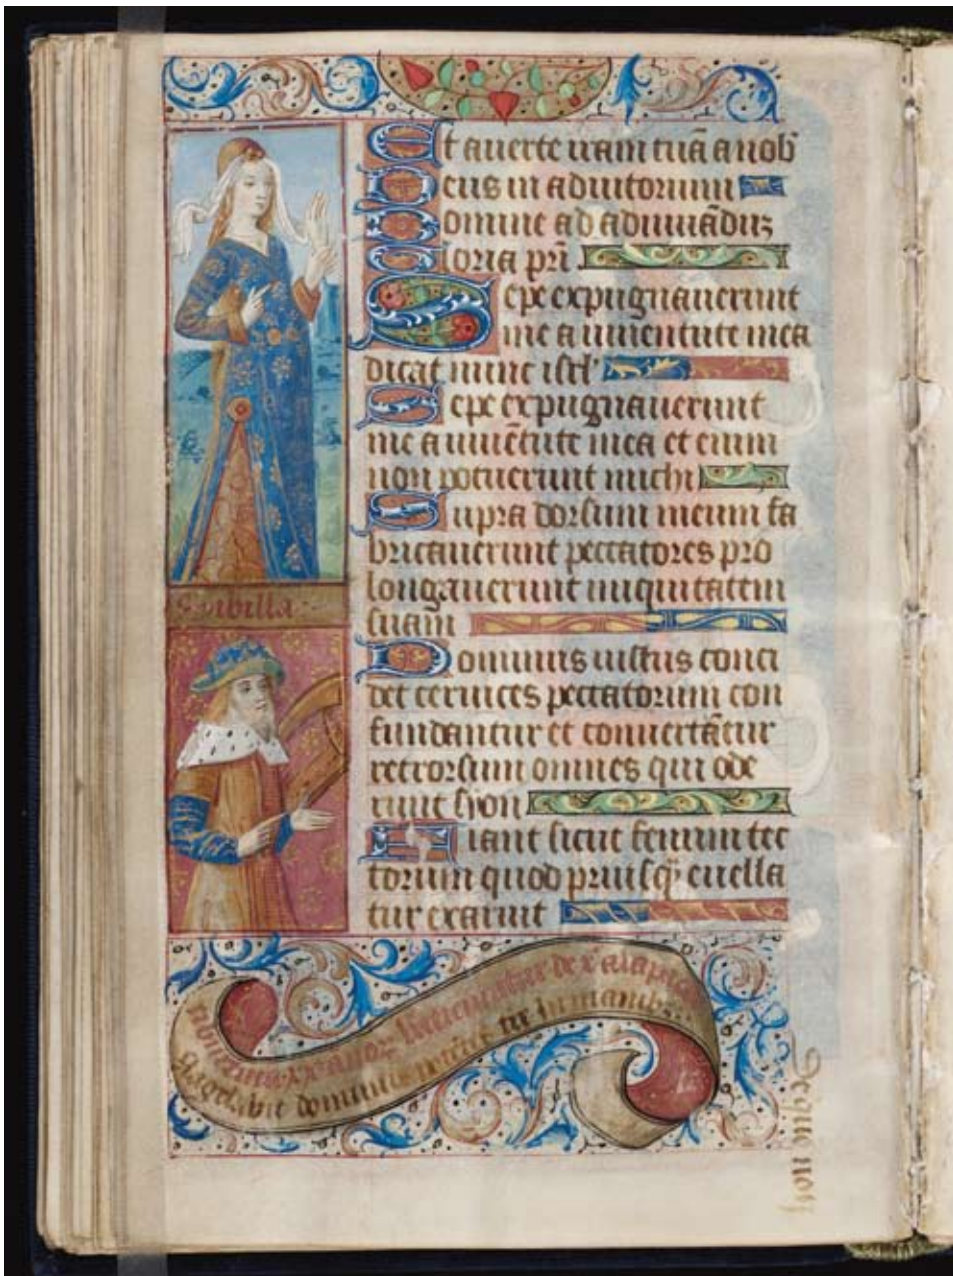 Et auerte iram tuã a nob'
Deus in adiutorium
Domine ad adiuuãduz
Gloria pri
Sepe expugnauerunt
me a iuuentute mea
dicat nunc isrl'
Sepe expugnauerunt
me a iuuẽtute mea et enim
non potuerunt michi
Supra dorsum meum fa
bricauerunt peccatores pro
longauerunt iniquitatem
suam
Dominus iustus conci
det ceruices peccatorum con
fundantur et conuertãtur
retrorsum omnes qui ode
runt syon
Fiant sicut fenum tec
torum quod priusq euella
tur exaruit
Sibilla